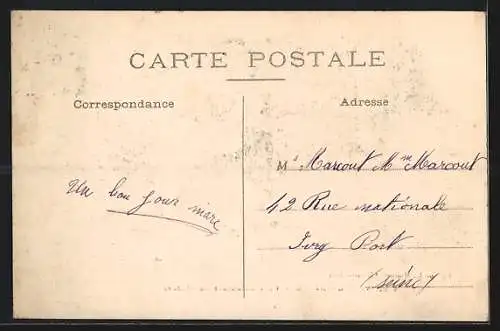 CARTE POSTALE
Correspondance
Adresse
M^r Marcout M^m Marcout
42 Rue nationale
Ivry Port
(seine)
Un bon jour marc